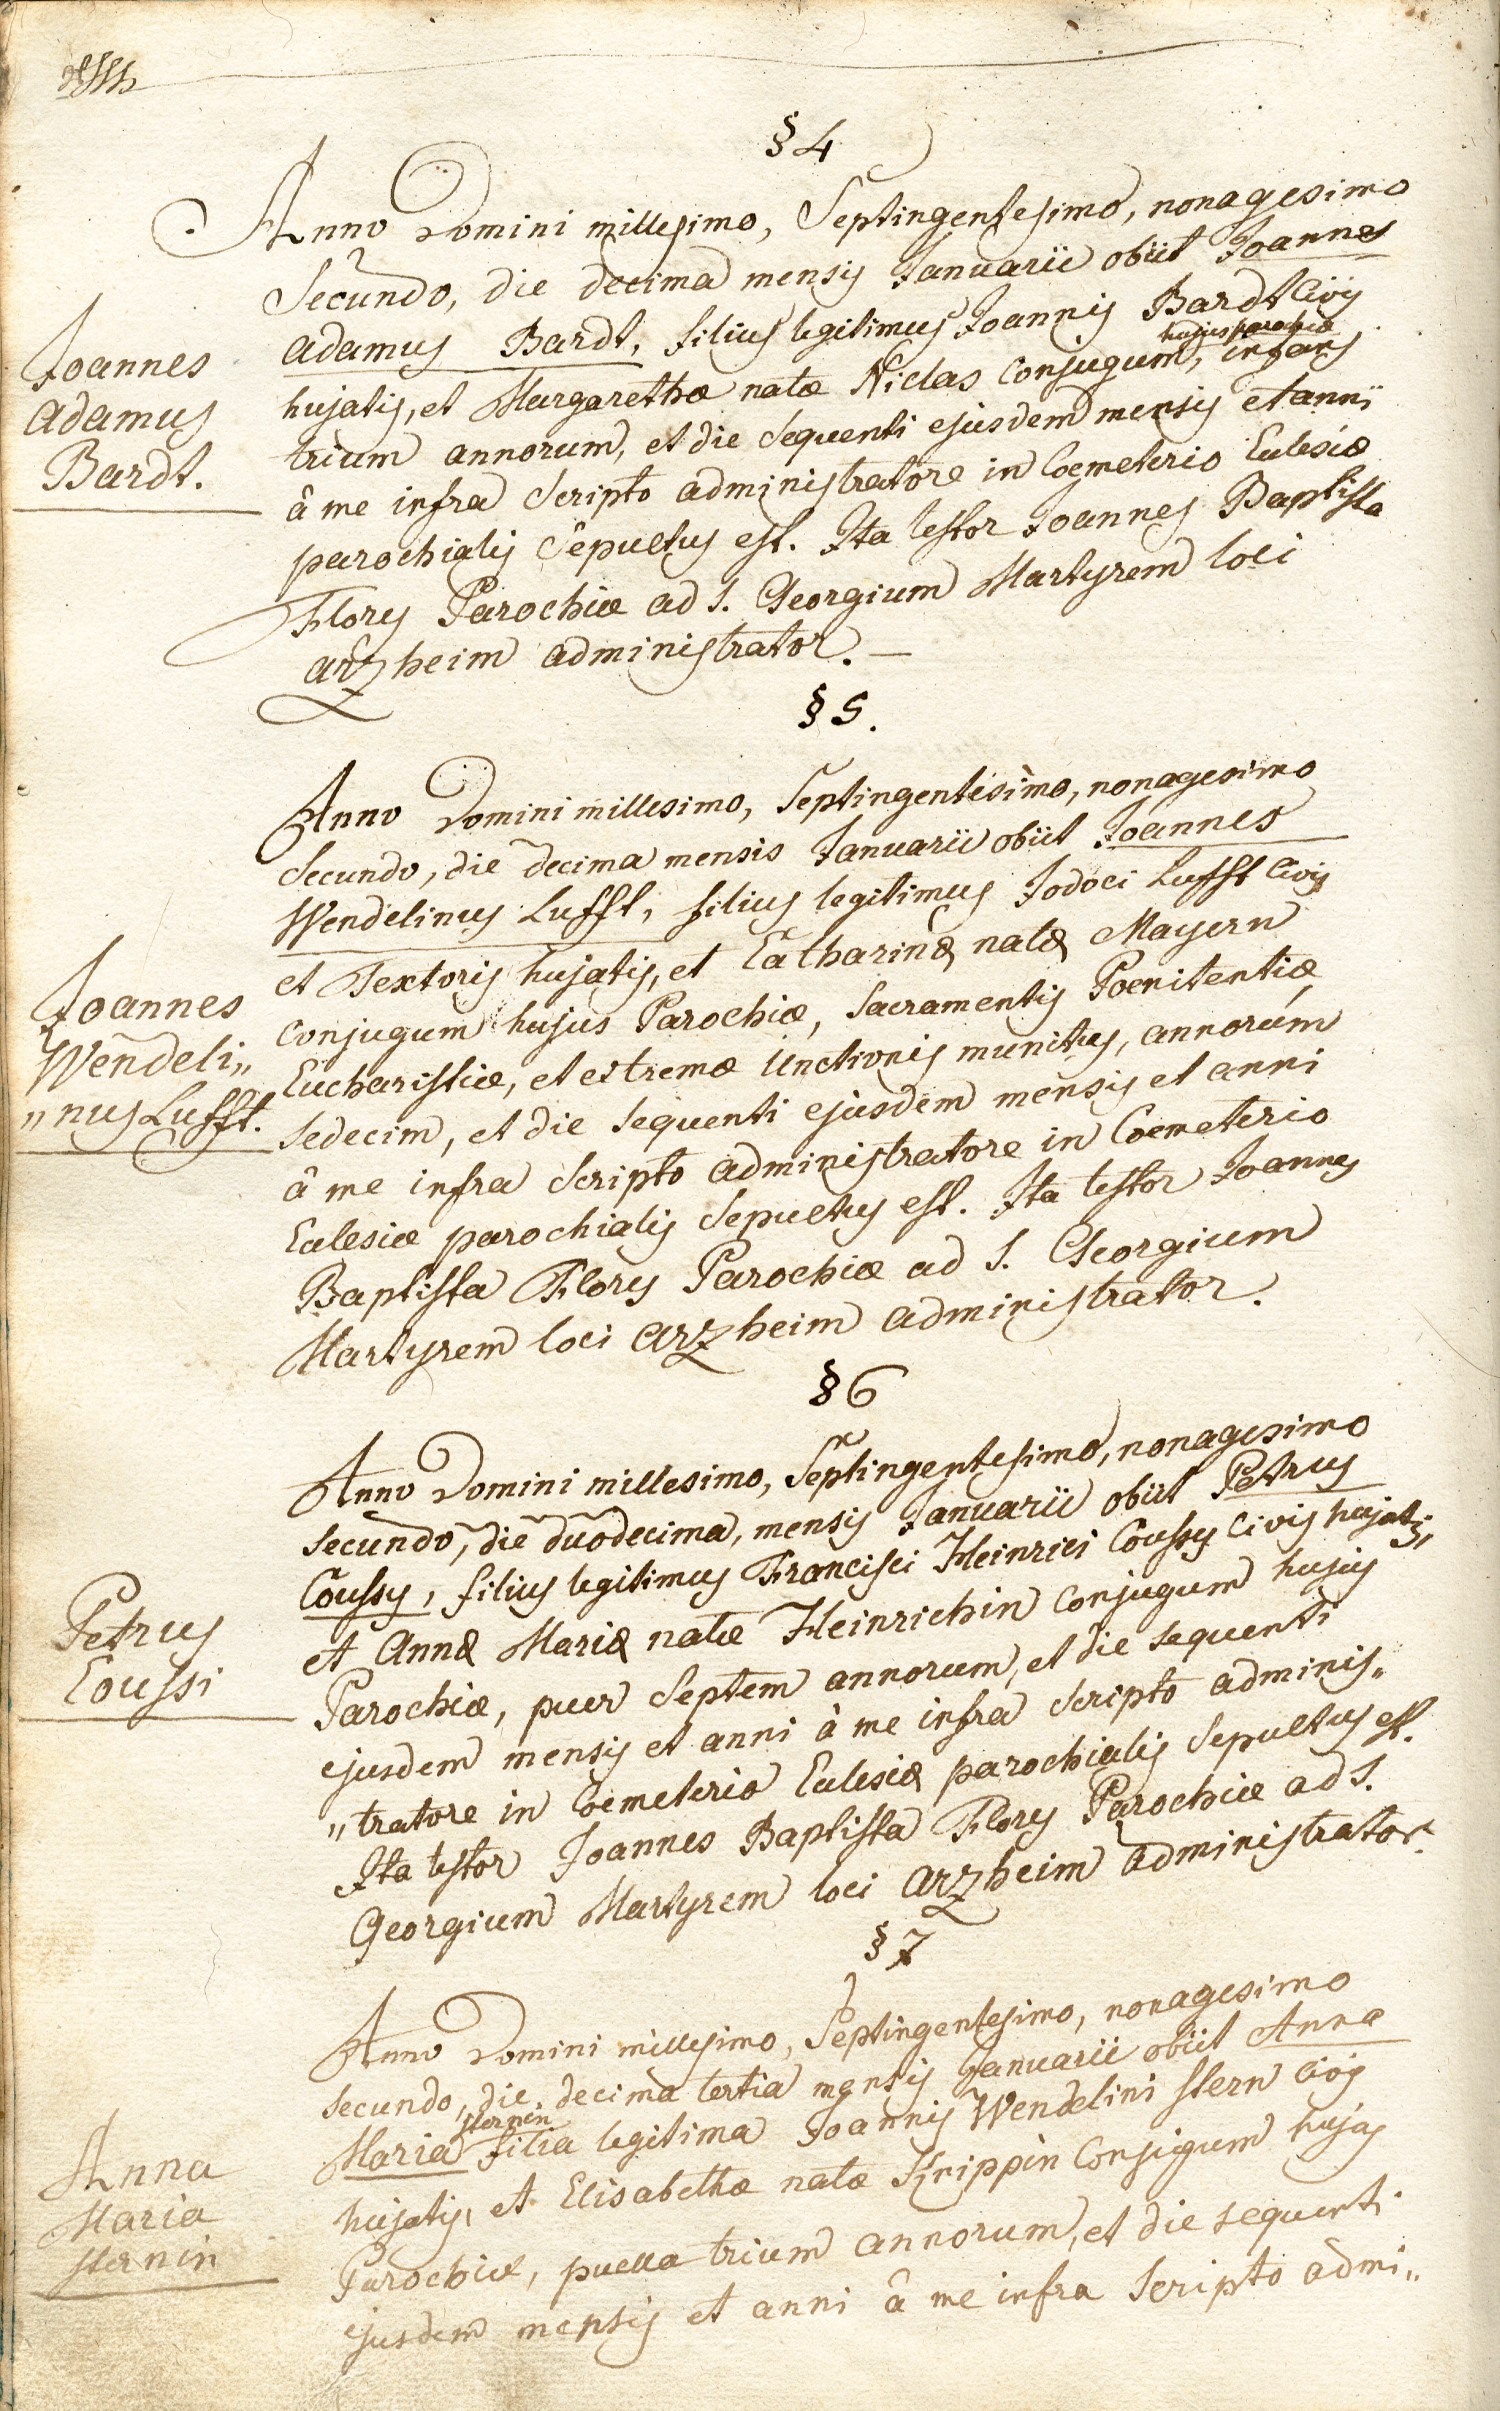 § 4
Anno Domini millesimo, Septingentesimo, nonagesimo
Secundo, die decima mensis Januarii obiit Joannes
adamus Bardt, filius legitimus Joannis Bardt Civis
hujus parochiæ
hujatis, et Margarethæ natæ Niclas Conjugum, infans
trium annorum, et die Sequenti ejusdem mensis et anni
â me infra Scripto administratore in Coemeterio Eclesiæ
parochialis Sepultus est. Ita testor Joannes Baptista
Flory Parochiæ ad S. Georgium Martyrem loci
arzheim administrator. —
Joannes
Adamus
Bardt.
§ 5.
Anno Domini millesimo, Septingentesimo, nonagesimo
Secundo, die decima mensis Januarii obiit Joannes
Wendelinus Lufft, filius legitimus Jodoci Lufft Civis
et Textoris hujatis, et Catharinæ natæ Mayern
Conjugum hujus Parochiæ, Sacramentis Poenitentiæ
Eucharistiæ, et extremæ Unctionis munitus, annorum
Sedecim, et die Sequenti ejusdem mensis et anni
â me infra Scripto administratore in Coemeterio
Eclesiæ parochialis Sepultus est. Ita testor Joannes
Baptista Flory Parochiæ ad S. Georgium
Martyrem loci arzheim administrator.
Joannes
Wendeli„
„nus Lufft.
§ 6
Anno Domini millesimo, Septingentesimo, nonagesimo
Secundo, die duodecima, mensis Januarii obiit Petrus
Coussy, filius legitimus Francisci Heinrici Coussy Civis hujatis,
et Annæ Mariæ natæ Heinrichin Conjugum hujus
Parochiæ, puer Septem annorum, et die sequenti
ejusdem mensis et anni à me infra Scripto adminis„
„tratore in Coemeterio Eclesiæ parochialis Sepultus est.
Ita testor Joannes Baptista Flory Parochiæ ad S.
Georgium Martyrem loci arzheim administrator.
Petrus
Coussi
§ 7
Anno Domini millesimo, Septingentesimo, nonagesimo
secundo, die decima tertia mensis Januarii obiit Anna
sternin
Maria filia legitima Joannis Wendelini Stern Civis
hujatis, et Elisabethæ natæ Knippin Conjugum hujus
Parochiæ, puella trium annorum, et die sequenti
ejusdem mensis et anni â me infra Scripto admi„
Anna
Maria
sternin